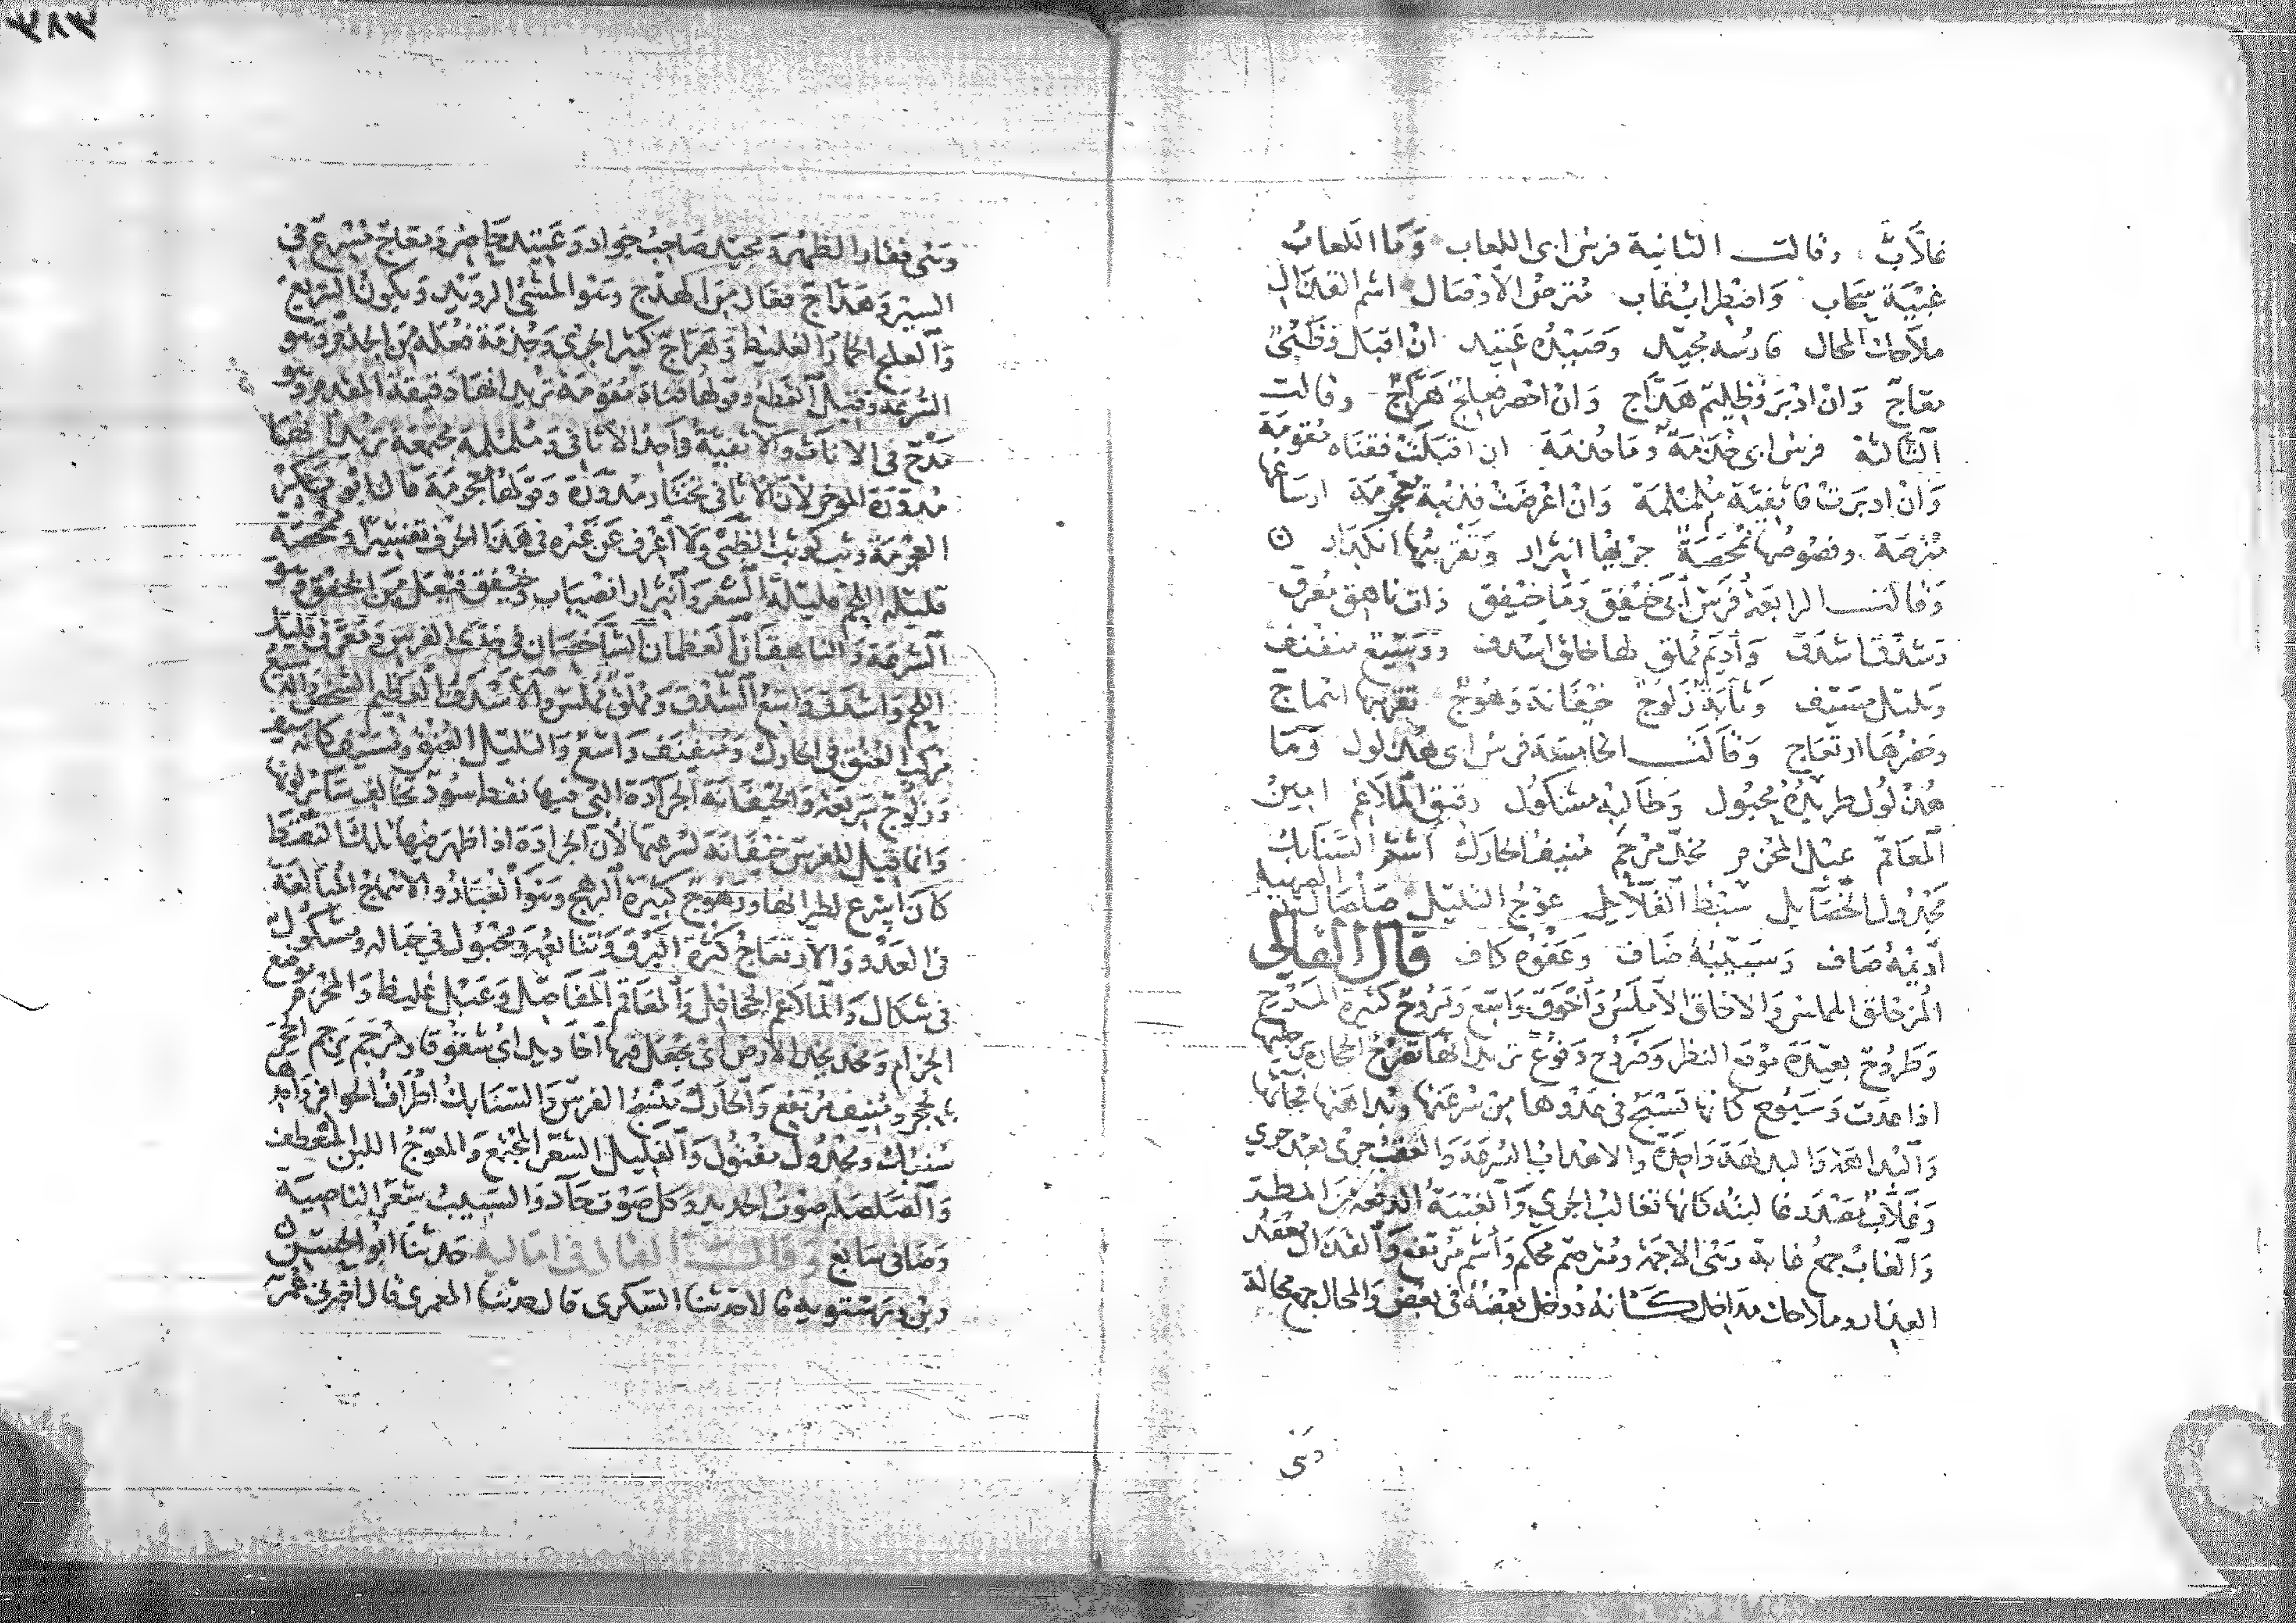 غلاب وقالت الثانية فرس ابى اللعاب وَمَا اللعابُ
غبيَة سحاب وَاضطراب غاب مترص الاوصال اشم القذال
ملاحك المحال فارسه مجيد وصيده عَتيد ان اقبل فظبىٌ
معاجٌ وَان ادبر فظليم هدّاج وَان احضر فعلج هرّاج وقالت
الثالثة فرس ابى حُذمَة وما حُذمَة ان اقبلت فقناه مقومَة
وَان ادبرت فاثفيَة ململمة وَان اعرضت فذئبة معجرمَة ارساغها
مترصَة وفصوصها ممحصَة جريها انثرار وَتقريبها انكدار
وَقالت الرابعة فرس ابى خيفق وَمَا خيفق ذات ناهق معرق
وَشدق اشدق وَاديم مملق لها خلق اشدف ودسيع منفنف
وتليل مسيف وثابَة زلوج خيفانة رهوج تقريبها اهماج
وحضرها ارتعاج وَقالت الخامسة فرس ابى هذلول وَمَا
هذلول طريده محبول وَطالبه مشكول رقيق الملاغم امين
المعاقم عبل المحزم مخدّ مرجم منيف الحارك اشم السنابك
مجدول الخصايل سبط الفلايل عوج التليل صلصال الصهيل
اديمه صاف وَسبيبه ضاف وعفوه كاف قال القالي
المزحلق المملس وَالاخلق الاملس وَاخوق واسع وَمروح كثيرة المرح
وَطروح بعيدة موقع النظر وَضروح دفوع تريد انها تضرح الحجارة برجليها
اذا عدَت وَسبوح كانها تسبح في عدوها من سرعتها وبداهتها فجأتها
وَالبداهة وَالبديهة واحدة والاهذاب السرعة وَالعقب جرى بعد جري
وَغلاب مصدر غالبته كانها تغالب الجري وَالغبيَة الدفعة من المطر
وَالغاب جمع غابة وهى الاجمة ومترص محكم وَاشم مرتفع وَالقذال معقد
العذار وملاحك مداخل كانه دوخل بعضه في بعض وَالمحال جمع محالة
وهى
٣٨٣
وهى فقار الظهر ومجيد صَاحب جواد وَعتيد حاضر ومعاج مسرع في
السير وَهدّاج فعّال من الهدج وهو المشى الرويد وَيكون السريع
وَالعلج الحمار الغليظ وَهرّاج كثير الجرى وَحذمة فعلة من الحذم وهو
السرعة وقيل القطع وقولها قناة مقومة تريد انها دقيقة المقدم وهو
مدح في الاناث وَالاثفيّة وَاحد الاثافى وململمة مجتمعة تريد انها
مدورة الموخر لان الاثافى تختار مدورة وقولها معجرمة قال ابو بكر
العجرمة وثب كوثب الظبى ولا اعرف عن غيره في هذا الحرف تفسيرا وممحصة
قليلة اللحم قليلة الشعر وَانثرار انصباب وخيفق فيعل من الخفق وهو
السرعة وَالناهقان العظمان الشاخصان في خدى الفرس ومعرق قليل
اللحم وَاشدق وَاسع الشدق وَمملق مملس وَالاشدف العظيم الشخص والدسيع
مركب العنق في الحارك وَمنفنف وَاسع وَالتليل العنق ومسيف كانه سيف
وَزلوج سريعة وَالخيفانة الجرادة التى فيها نقط سود تخالف سائر لونها
وَانما قيل للفرس خيفانة لسرعتها لان الجرادة اذا ظهر فيها تلك النقط
كان اسرع لطيرانها ورهوج كثيرة الرهج وهو الغبار والاهماج المبالغة
في العدو وَالارتعاج كثرة البرق وتتابعه ومحبول في حباله ومشكول
في شكال وَالملاغم الجحافل وَالمعاقم المفاصل وعبل غليظ وَالمحزم موضع
الحزام ومخد يخد الارض اى يجعل فيها اخاديد اى شقوقا ومرجم يرجم الحجر
بالحجر ومنيف مرتفع وَالحارك منسج الفرس وَالسنابك اطراف الحوافر واحدها
سنبك ومجدول مفتول وَالفليل الشعر المجتمع وَالمعوّج اللين المنعطف
وَالصلصلة صوت الحديد وكل صوت حاد وَالسبيب شعر الناصية
وَضافى سابغ وَقالَ القالى فى اماليه حدثنا ابو الحسين
وبن درستويه قالا حدثنا السكرى قال حدثنا المعمرى قال اخبرنى عمر